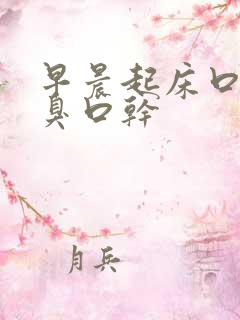 早晨起床口
臭口幹
月兵